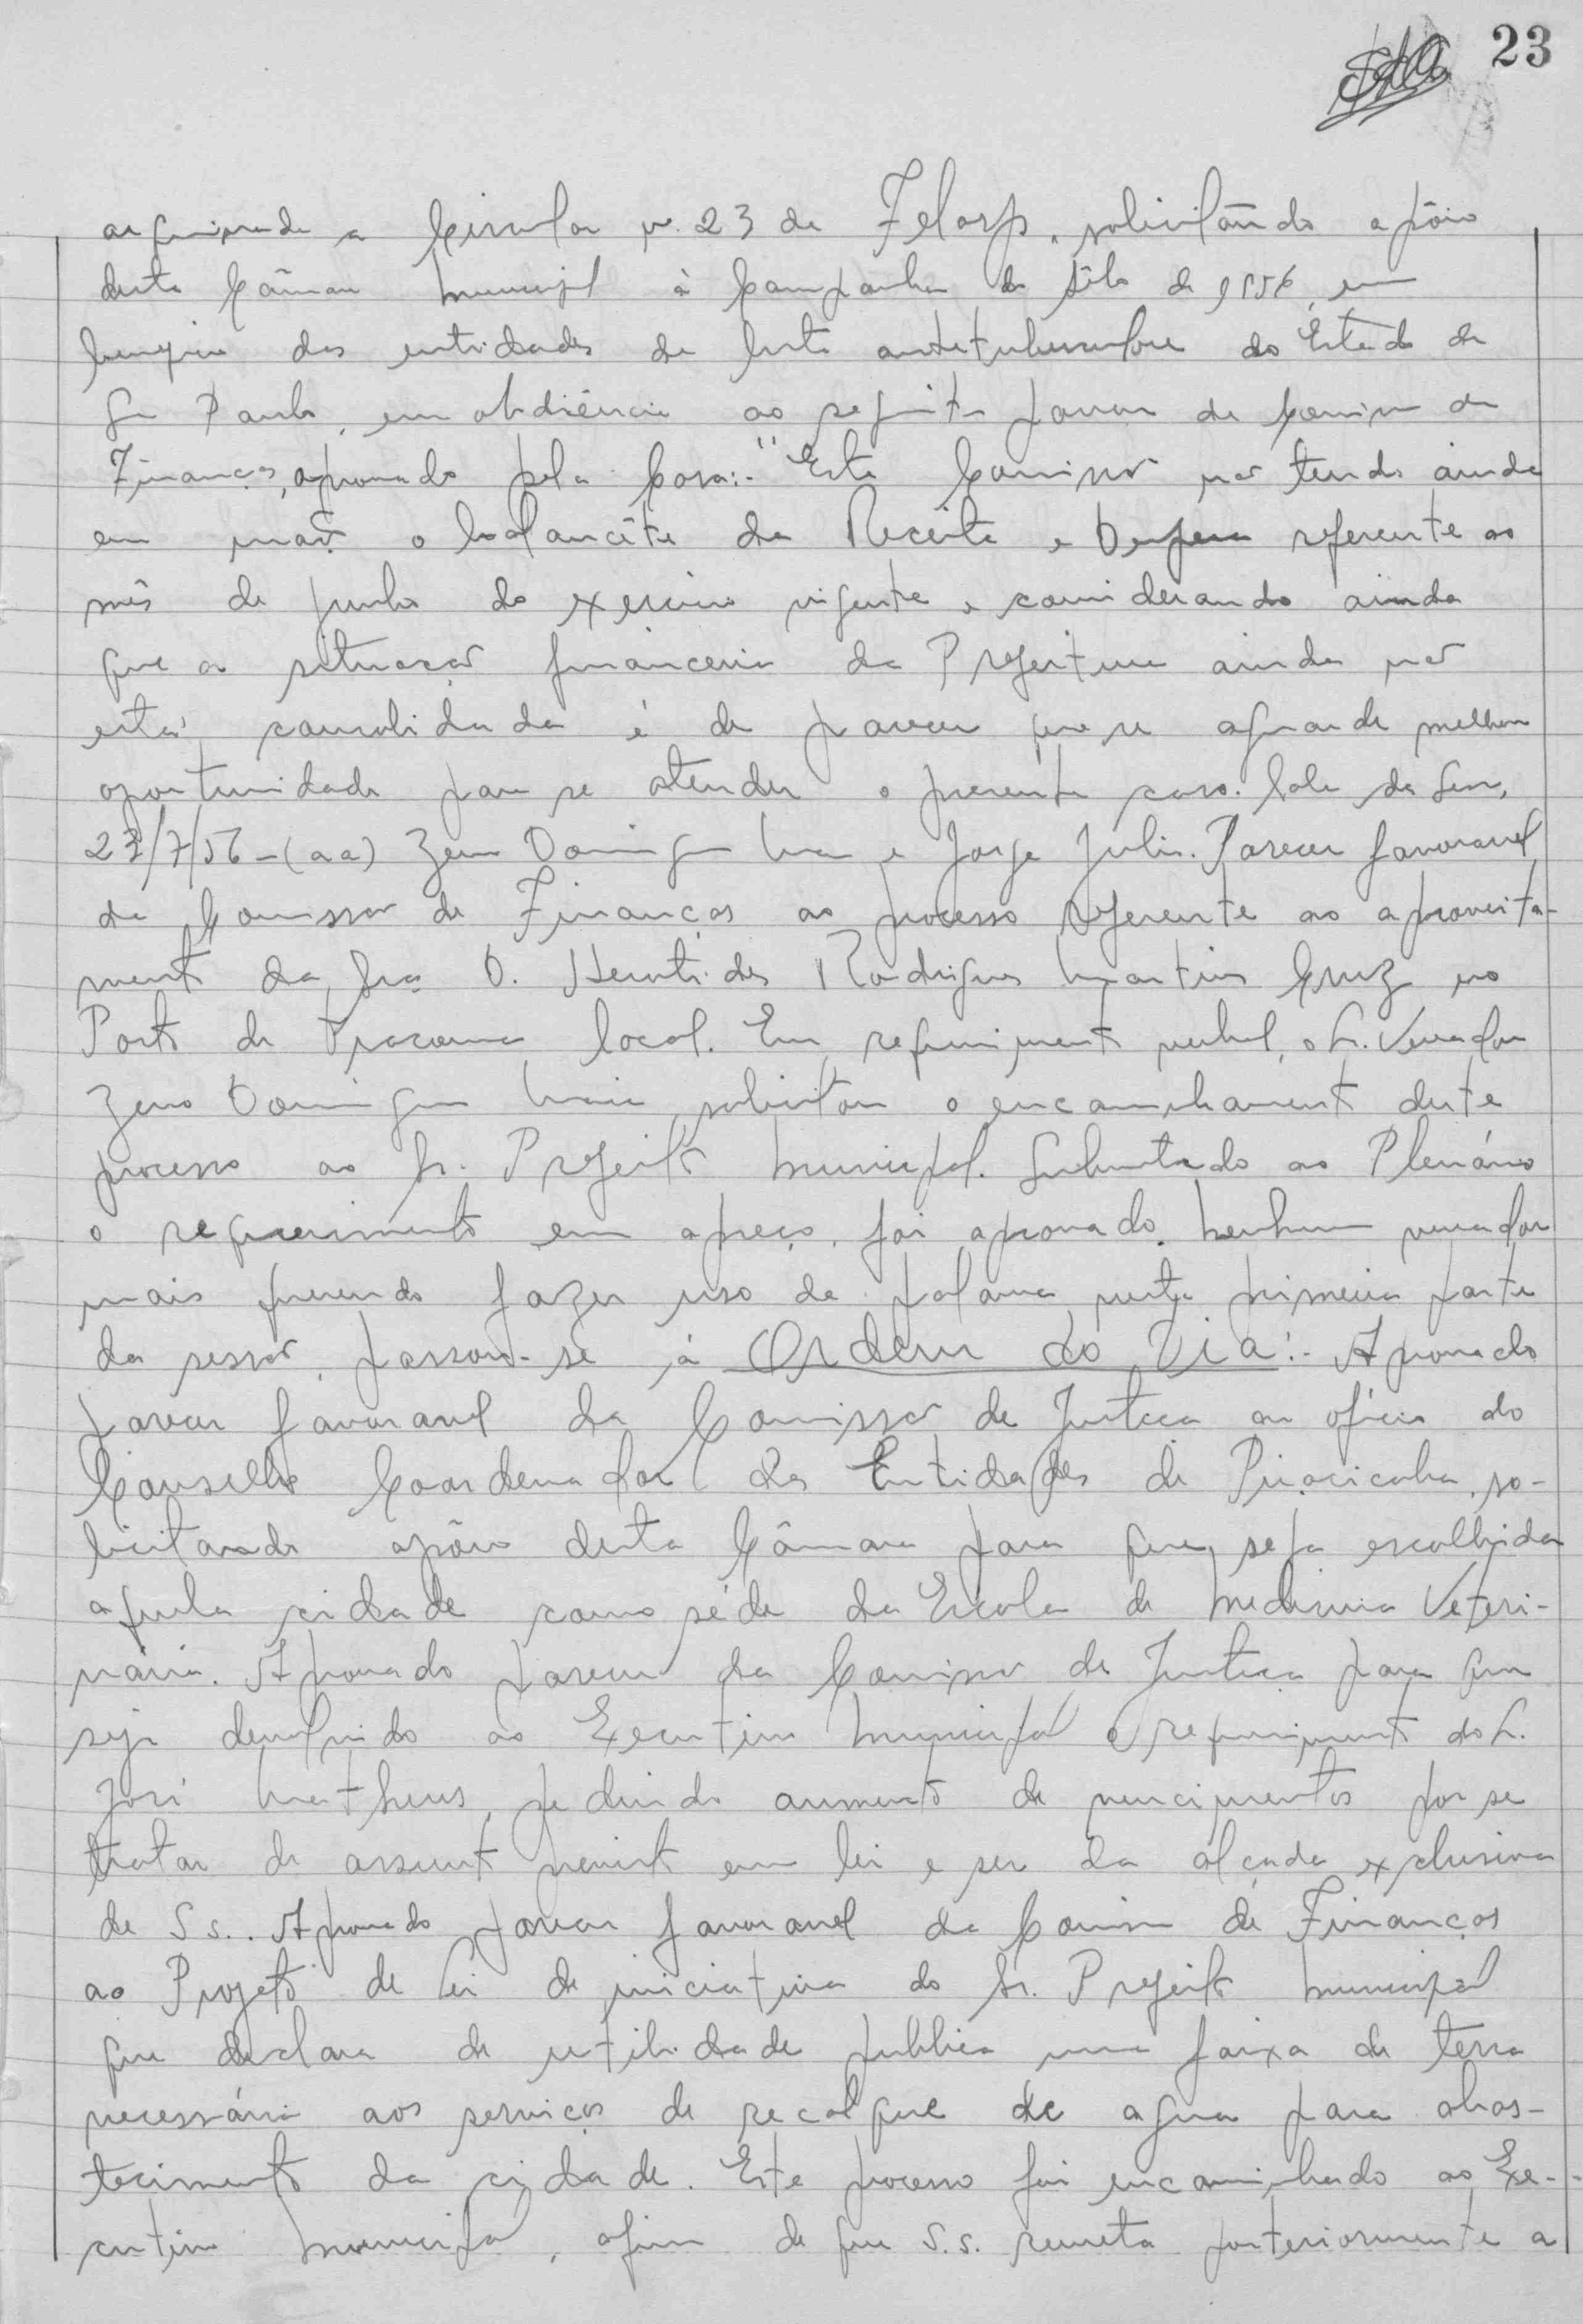 23
arquivando a Circular nº 23 da Felasp, solicitando apôio
desta Câmara Municipal à Campanha do Sêlo de 1956, em
beneficio das entidades de luta antituberculose do Estado de
São Paulo, em obdiência ao seguinte parecer da Comissão de
Finanças, aprovado pela Casa:- "Esta Comissão não tendo ainda
em mãos o balancête da Receita e Despesa referente ao
mês de junho do exercicio vigente e considerando ainda
que a situação financeira da Prefeitura ainda não
está consolidada é de parecer que se aguarde melhor
oportunidade para se atender o presente caso. Sala das Sess,
23/7/56 - (aa) Zeno Domingues Maia e Jorge Julio. Parecer favoravel
da Comissão de Finanças ao processo referente ao aproveita-
mento da Sra D. Rodrigues Martins Cruz no
Posto de local. Em requerimento verbal, o Sr. Vereador
Zeno Domingues Maia, solicitou o encaminhamento deste
processo ao Sr. Prefeito Municipal. Submetido ao Plenário
o requerimento em apreço, foi aprovado. Nenhum vereador
mais querendo fazer uso da palavra nesta primeira parte
da sessão, passou-se à Ordem do Dia:- Aprovado
parecer favoravel da Comissão de Justiça ao oficio do
Conselho Coordenador das Entidades de Piracicaba, so-
licitando apôio desta Câmara para que seja escolhida
aquela cidade como séde da Escola de Medicina Veteri-
nária. Aprovado parecer da Comissão de Justiça para que
seja devolvido ao Executivo Municipal o requerimento do Sr.
José Matheus, pedindo aumento de vencimentos por se
tratar de assunto previsto em lei e ser da alçada exclusiva
de S s.. Aprovado parecer favoravel da Comissão de Finanças
ao Projeto de Lei de iniciativa do Sr. Prefeito Municipal
que declara de utilidade publica uma faixa de terra
necessária aos serviços de recalque de agua para abas-
tecimento da cidade. Este processo foi encaminhado ao Exe-
cutivo Municipal, afim de que S.s. remeta posteriormente a